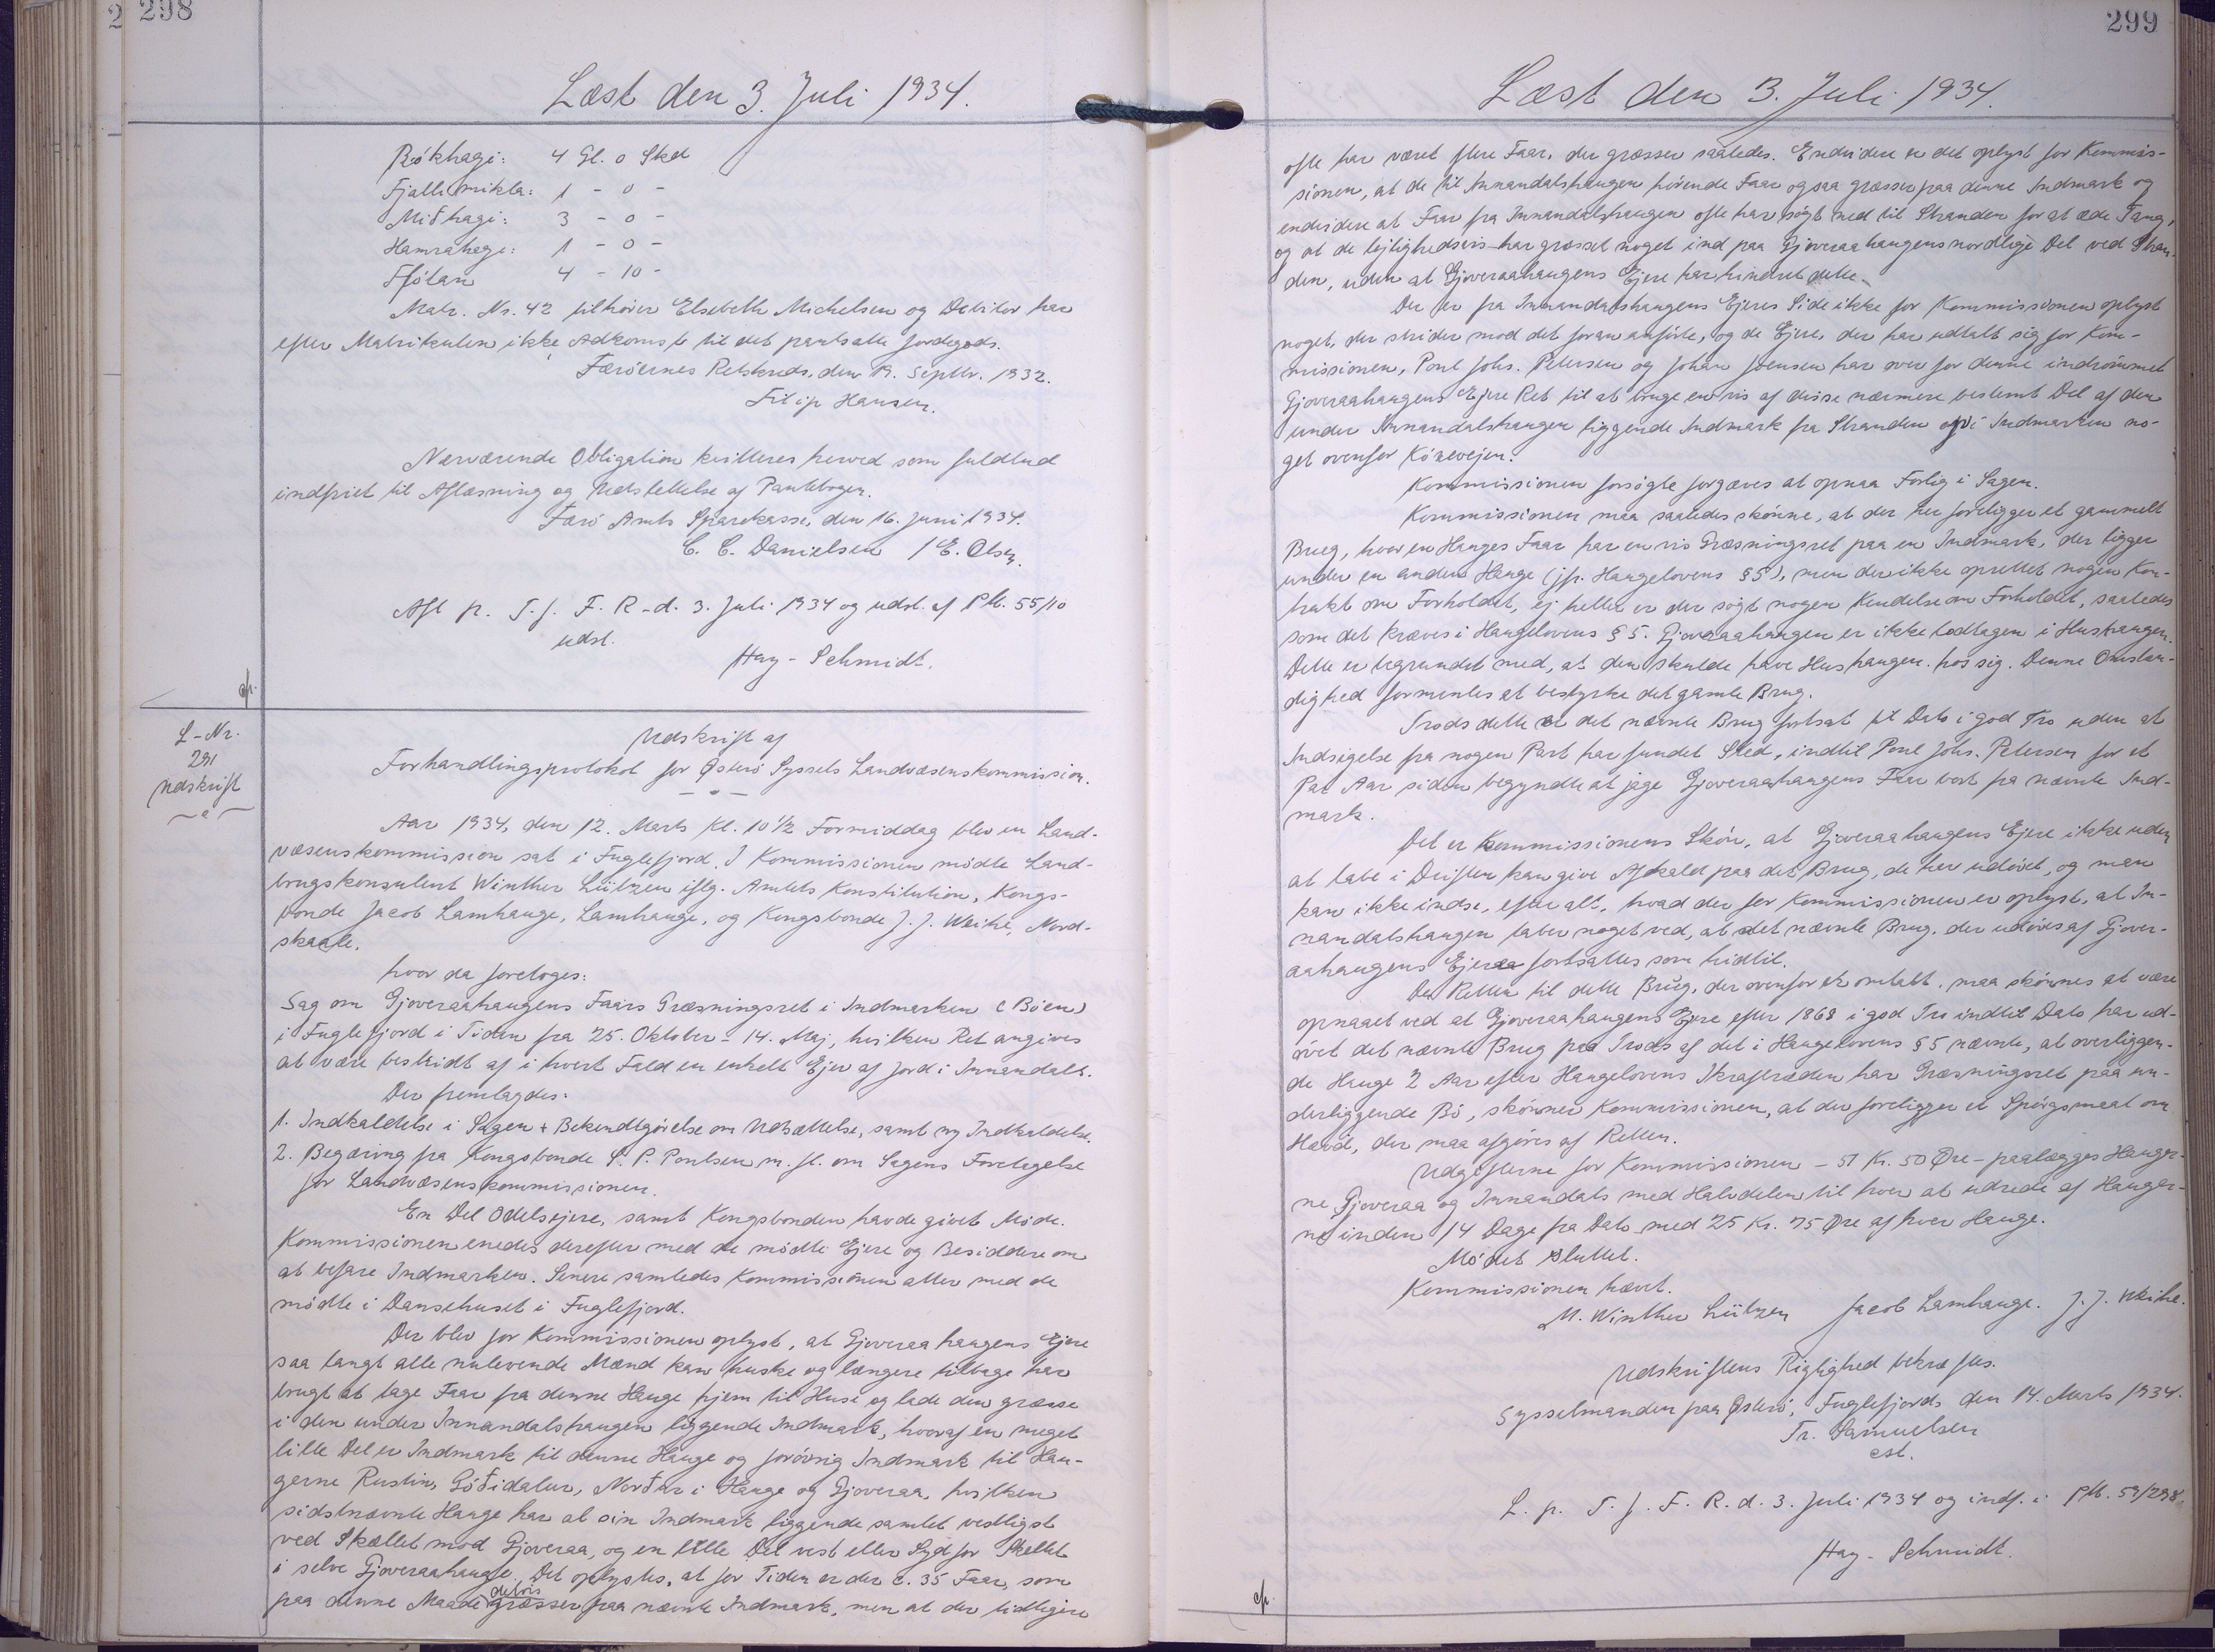 298
Læst den 3. Juli 1934.
Rókhagi: 4 Gl. 0 Skd
Fjalli mikla: 1 - 0 -
Miðhagi: 3 - 0 -
Hamrahagi: 1 - 0 -
4 - 10 -
Matr. Nr. 42 tilhører Elsebeth Michelsen og Debitor har
efter Matrikulen ikke Adkomst til det pantsatte Jordegods.
Færøernes Retskreds, den 19. Septbr. 1932.
Filip Hansen.
Nærværende Obligation kvitteres herved som fuldtud
indfriet til Aflæsning og Udslettelse af Pantebogen.
Færø Amts Sparekasse, den 16. Juni 1934.
C. C. Danielsen / E. Olsen.
Afl p. T. f. F. R. d. 3. Juli 1934 og udsl. af Pb. 55/10
udsl.
Hay-Schmidt.
L-Nr.
291
Udskrift
Udskrift af
Forhandlingsprotokol for Østerø Syssels Landvæsenskommission.
Aar 1934, den 12. Marts Kl. 10½ Formiddag blev en Land-
væsenskommission sat i Fuglefjord. I Kommissionen mødte Land-
brugskonsulent Winther Lützen iflg. Amtets Konstitution, Kongs-
bonde Jacob Lamhauge, Lamhauge, og Kongsbonde J. J. Weihe, Nord-
skaale,
hvor da foretoges:
Sag om Gjoveraahaugens Faars Græsningsret i Indmarken (Bøen)
i Fuglefjord i Tiden fra 25. Oktober - 14. Maj, hvilken Ret angives
at være bestridt af i hvert Fald en enkelt Ejer af Jord i Innandals.
Der fremlagdes:
1. Indkaldelse i Sagen + Bekendtgørelse om Udsættelse, samt ny Indkaldelse.
2. Begæring fra Kongsbonde S. P. Poulsen m. fl. om Sagens Foretagelse
for Landvæsenskommissionen.
En Del Odelsejere, samt Kongsbonden havde givet Møde.
Kommissionen enedes derefter med de mødte Ejere og Besiddere om
at befare Indmarken. Senere samledes Kommissionen atter med de
mødte i Dansehuset i Fuglefjord.
Der blev for Kommissionen oplyst, at Gjoveraahaugens Ejere
saa langt alle nulevende Mænd kan huske og længere tilbage har
brugt at tage Faar fra denne Hauge hjem til Huse og lade dem græsse
i den under Innandalshaugen liggende Indmark, hvoraf en meget
lille Del er Indmark til denne Hauge og forøvrig Indmark til Hau-
gerne Rustin, Góðidalur, Norður i Hauge og Gjoveraa, hvilken
sidstnævnte Hauge har al sin Indmark liggende samlet vestligst
ved Skellet mod Gjoveraa, og en lille Del vest eller Syd for Skellet
i selve Gjoveraahauge. Det oplystes, at for Tiden er der c. 35 Faar, som
paa denne Maade delvis græsser paa nævnte Indmark, men at der tidligere
299
Læst den 3. Juli 1934.
ofte har været flere Faar, der græsser saaledes. Endvidere er det oplyst for Kommis-
sionen, at de til Innandalshaugen hørende Faar ogsaa græsser paa denne Indmark og
endvidere at Faar fra Innandalshaugen ofte har søgt ned til Stranden for at æde Tang,
og at de lejlighedsvis har græsset noget ind paa Gjoveraahaugens nordlige Del ved Stran-
den, uden at Gjoveraahaugens Ejere har hindret dette.
Der er fra Innandalshaugens Ejeres Side ikke for Kommissionen oplyst
noget, der strider mod det foran anførte, og de Ejere, der har udtalt sig for Kom-
missionen, Poul Johs. Petersen og Johan Joensen har over for denne indrømmet
Gjoveraahaugens Ejere Ret til at bruge en vis af disse nærmere bestemt Del af den
under Innandalshaugen liggende Indmark fra Stranden op i Indmarken no-
get ovenfor Kórevejen.
Kommissionen forsøgte forgæves at opnaa Forlig i Sagen.
Kommissionen maa saaledes skønne, at der her foreligger et gammelt
Brug, hvor en Hauges Faar har en vis Græsningsret paa en Indmark, der ligger
under en anden Hauge (jfr. Haugelovens § 5), men der ikke oprettet nogen Kon-
trakt om Forholdet, ej heller er der søgt nogen Kendelse om Forholdet, saaledes
som det kræves i Haugelovens § 5. Gjoveraahaugen er ikke lodtagen i Hushaugen.
Dette er begrundet med, at den skulde have Hushaugen hos sig. Denne Omstæn-
dighed formentes at bestyrke det gamle Brug.
Trods dette er det nævnte Brug fortsat til Dato i god Tro uden at
Indsigelse fra nogen Part har fundet Sted, indtil Poul Johs. Petersen for et
Par Aar siden begyndte at jage Gjoveraahaugens Faar bort fra nævnte Ind-
mark.
Det er Kommissionens Skøn, at Gjoveraahaugens Ejere ikke uden
at tabe i Driften kan give Afkald paa det Brug, de her udøvet, og man
kan ikke indse, efter alt, hvad der for Kommissionen er oplyst, at In-
nandalshaugen taber noget ved, at det nævnte Brug, der udøves af Gjover-
aahaugens Ejere fortsættes som hidtil.
Da Retten til dette Brug, der ovenfor er omtalt, maa skønnes at være
opnaaet ved at Gjoveraahaugens Ejere efter 1868 i god Tro indtil Dato har ud-
øvet det nævnte Brug paa Trods af det i Haugelovens § 5 nævnte, at overliggen-
de Hauge 2 Aar efter Haugelovens Ikrafttræden har Græsningsret paa un-
derliggende Bø, skønner Kommissionen, at der foreligger et Spørgsmaal om
Hævd, der maa afgøres af Retten.
Udgifterne for Kommissionen - 51 Kr. 50 Øre - paalægges Hauger-
ne Gjoveraa og Innandals med Halvdelen til hver at udrede af Hauger-
ne inden 14 Dage fra Dato med 25 Kr. 75 Øre af hver Hauge.
Mødet sluttet.
Kommissionen hævet.
M. Winther Lützen Jacob Lamhauge. J. J. Weihe.
Udskriftens Rigtighed bekræftes.
Sysselmanden paa Østerø, Fuglefjord, den 14. Marts 1934.
Tr. Samuelsen
cst.
L. p. T. f. F. R. d. 3. Juli 1934 og indf. i Pb. 59/298.
Hay-Schmidt.